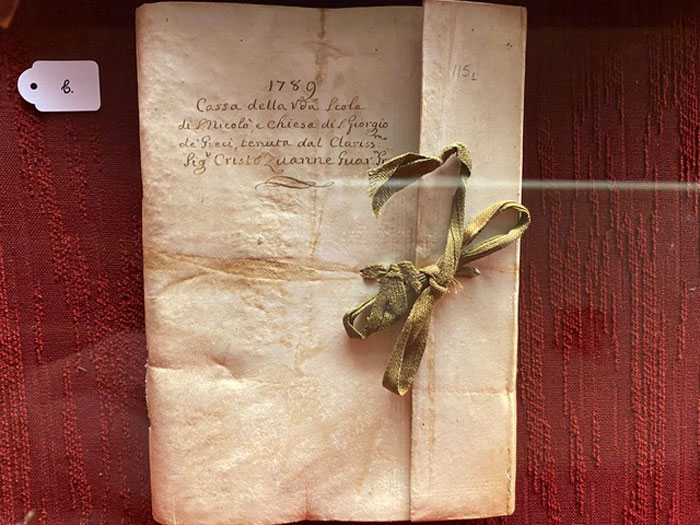 6.
115
1789
Cassa della Vda Scola
di S. Nicolò e Chiesa di S. Giorgio
de' Greci, tenuta dal Clariss:mo
Sigr Cristo Zuanne Guar